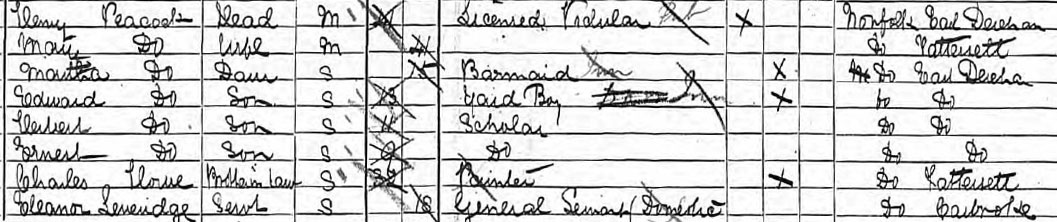 Henry Peacock Head M Licensed Victular X Norfolk East Dereham
Mary Do Wife M Do Tatterset
Martha Do Daur S Barmaid Inn X Do East Dereha
Edward Do Son S 13 Yard Boy Inn X Do Do
Herbert Do Son S 11 Scholar Do Do
Ernest Do Son S 9 Do Do Do
Charles Howe Brother in Law S Painter X Do Tatterset
Eleanor Leveridge Servt S 18 General Servant Domestic Do Carbrooke